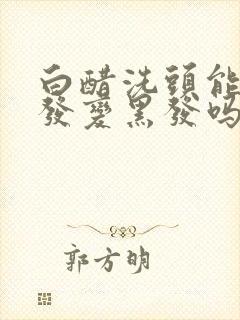 白醋洗頭能
發變黑發嗎
郭方明